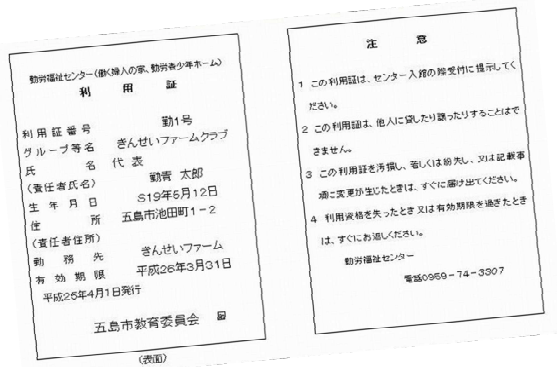 勤労福祉センター(働く婦人の家、勤労青少年ホーム)
利用証
利用証番号 勤1号
グループ等名 きんせいファームクラブ
氏名 代表
(責任者氏名) 勤青 太郎
生年月日 S19年5月12日
住所 五島市池田町1-2
(責任者住所)
勤務先 きんせいファーム
有効期限 平成26年3月31日
平成25年4月1日発行
五島市教育委員会 印
(表面)
注意
1 この利用証は、センター入館の際受付に提示してく
ださい。
2 この利用証は、他人に貸したり譲ったりすることはで
きません。
3 この利用証を汚損し、若しくは紛失し、又は記載事
項に変更が生じたときは、すぐに届け出てください。
4 利用資格を失ったとき又は有効期限を過ぎたとき
は、すぐにお返しください。
勤労福祉センター
電話0959-74-3307